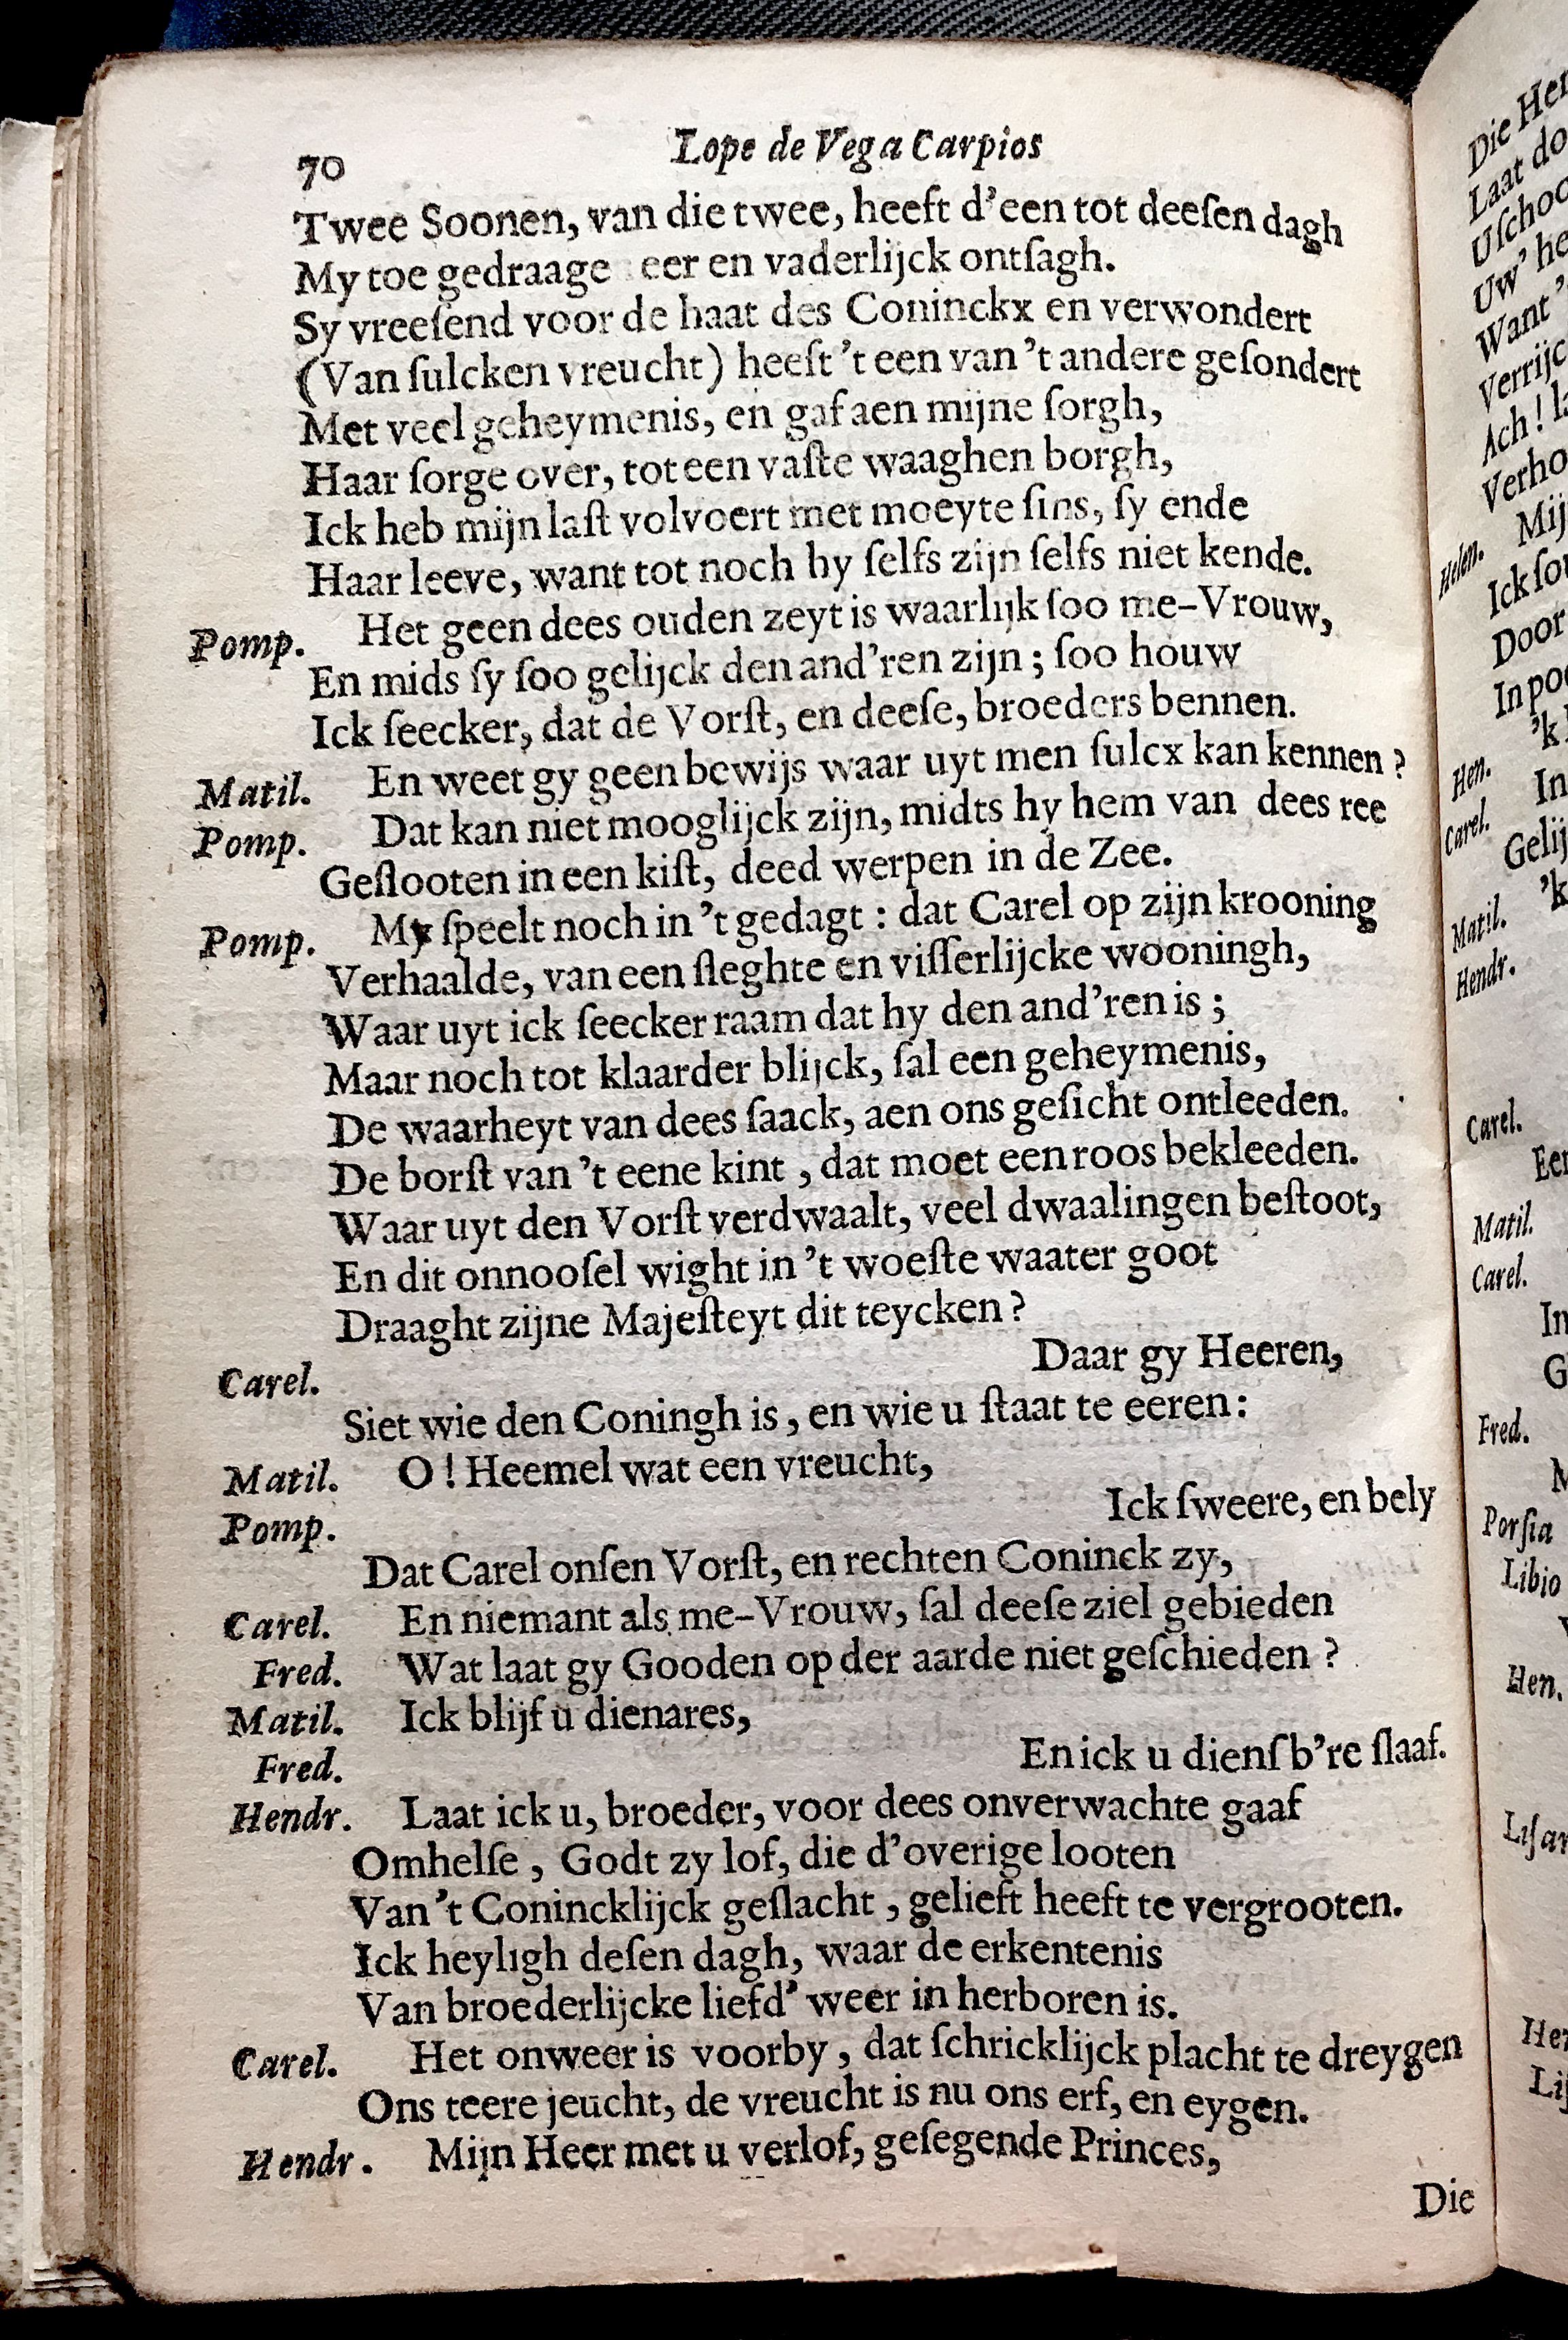 70 Lope de Vega Carpios
Twee Soonen, van die twee, heeft d'een tot deeſen dagh
My toe gedraage eer en vaderlijck ontſagh.
Sy vreeſend voor de haat des Coninckx en verwondert
(Van ſulcken vreucht) heeft 't een van 't andere geſondert
Met veel geheymenis, en gaf aen mijne ſorgh,
Haar ſorge over, tot een vaſte waaghen borgh,
Ick heb mijn laſt volvoert met moeyte ſins, ſy ende
Haar leeve, want tot noch hy ſelfs zijn ſelfs niet kende.
Pomp. Het geen dees ouden zeyt is waarlijk ſoo me-Vrouw,
En mids ſy ſoo gelijck den and'ren zijn; ſoo houw
Ick ſeecker, dat de Vorſt, en deeſe, broeders bennen.
Matil. En weet gy geen bewijs waar uyt men ſulcx kan kennen?
Pomp. Dat kan niet mooglijck zijn, midts hy hem van dees ree
Geſlooten in een kiſt, deed werpen in de Zee.
Pomp. My ſpeelt noch in 't gedagt: dat Carel op zijn krooning
Verhaalde, van een ſleghte en viſſerlijcke wooningh,
Waar uyt ick ſeecker raam dat hy den and'ren is;
Maar noch tot klaarder blijck, ſal een geheymenis,
De waarheyt van dees ſaack, aen ons geſicht ontleeden.
De borſt van 't eene kint, dat moet een roos bekleeden.
Waar uyt den Vorſt verdwaalt, veel dwaalingen beſtoot,
En dit onnooſel wight in 't woeſte waater goot
Draaght zijne Majeſteyt dit teycken?
Carel. Daar gy Heeren,
Siet wie den Coningh is, en wie u ſtaat te eeren:
Matil. O! Heemel wat een vreucht,
Pomp. Ick ſweere, en bely
Dat Carel onſen Vorſt, en rechten Coninck zy,
Carel. En niemant als me-Vrouw, ſal deeſe ziel gebieden
Fred. Wat laat gy Gooden op der aarde niet geſchieden?
Matil. Ick blijf u dienares,
Fred. En ick u dienſb're ſlaaf.
Hendr. Laat ick u, broeder, voor dees onverwachte gaaf
Omhelſe, Godt zy lof, die d'overige looten
Van 't Conincklijck geſlacht, gelieft heeft te vergrooten.
Ick heyligh deſen dagh, waar de erkentenis
Van broederlijcke liefd' weer in herboren is.
Carel. Het onweer is voorby, dat ſchricklijck placht te dreygen
Ons teere jeucht, de vreucht is nu ons erf, en eygen.
Hendr. Mijn Heer met u verlof, geſegende Princes,
Die
Die
Laat
Uſchoo
Uw' he
Want
Verrijc
Ach!
Verho
Mij
Helen.
Ick ſo
Door
In
'k
Hen. In
Carel.
Gelij
'k
Matil.
Hendr.
Carel.
Een
Matil.
Carel.
In
G
Fred.
Porſia
Libio
Hen.
Liſar